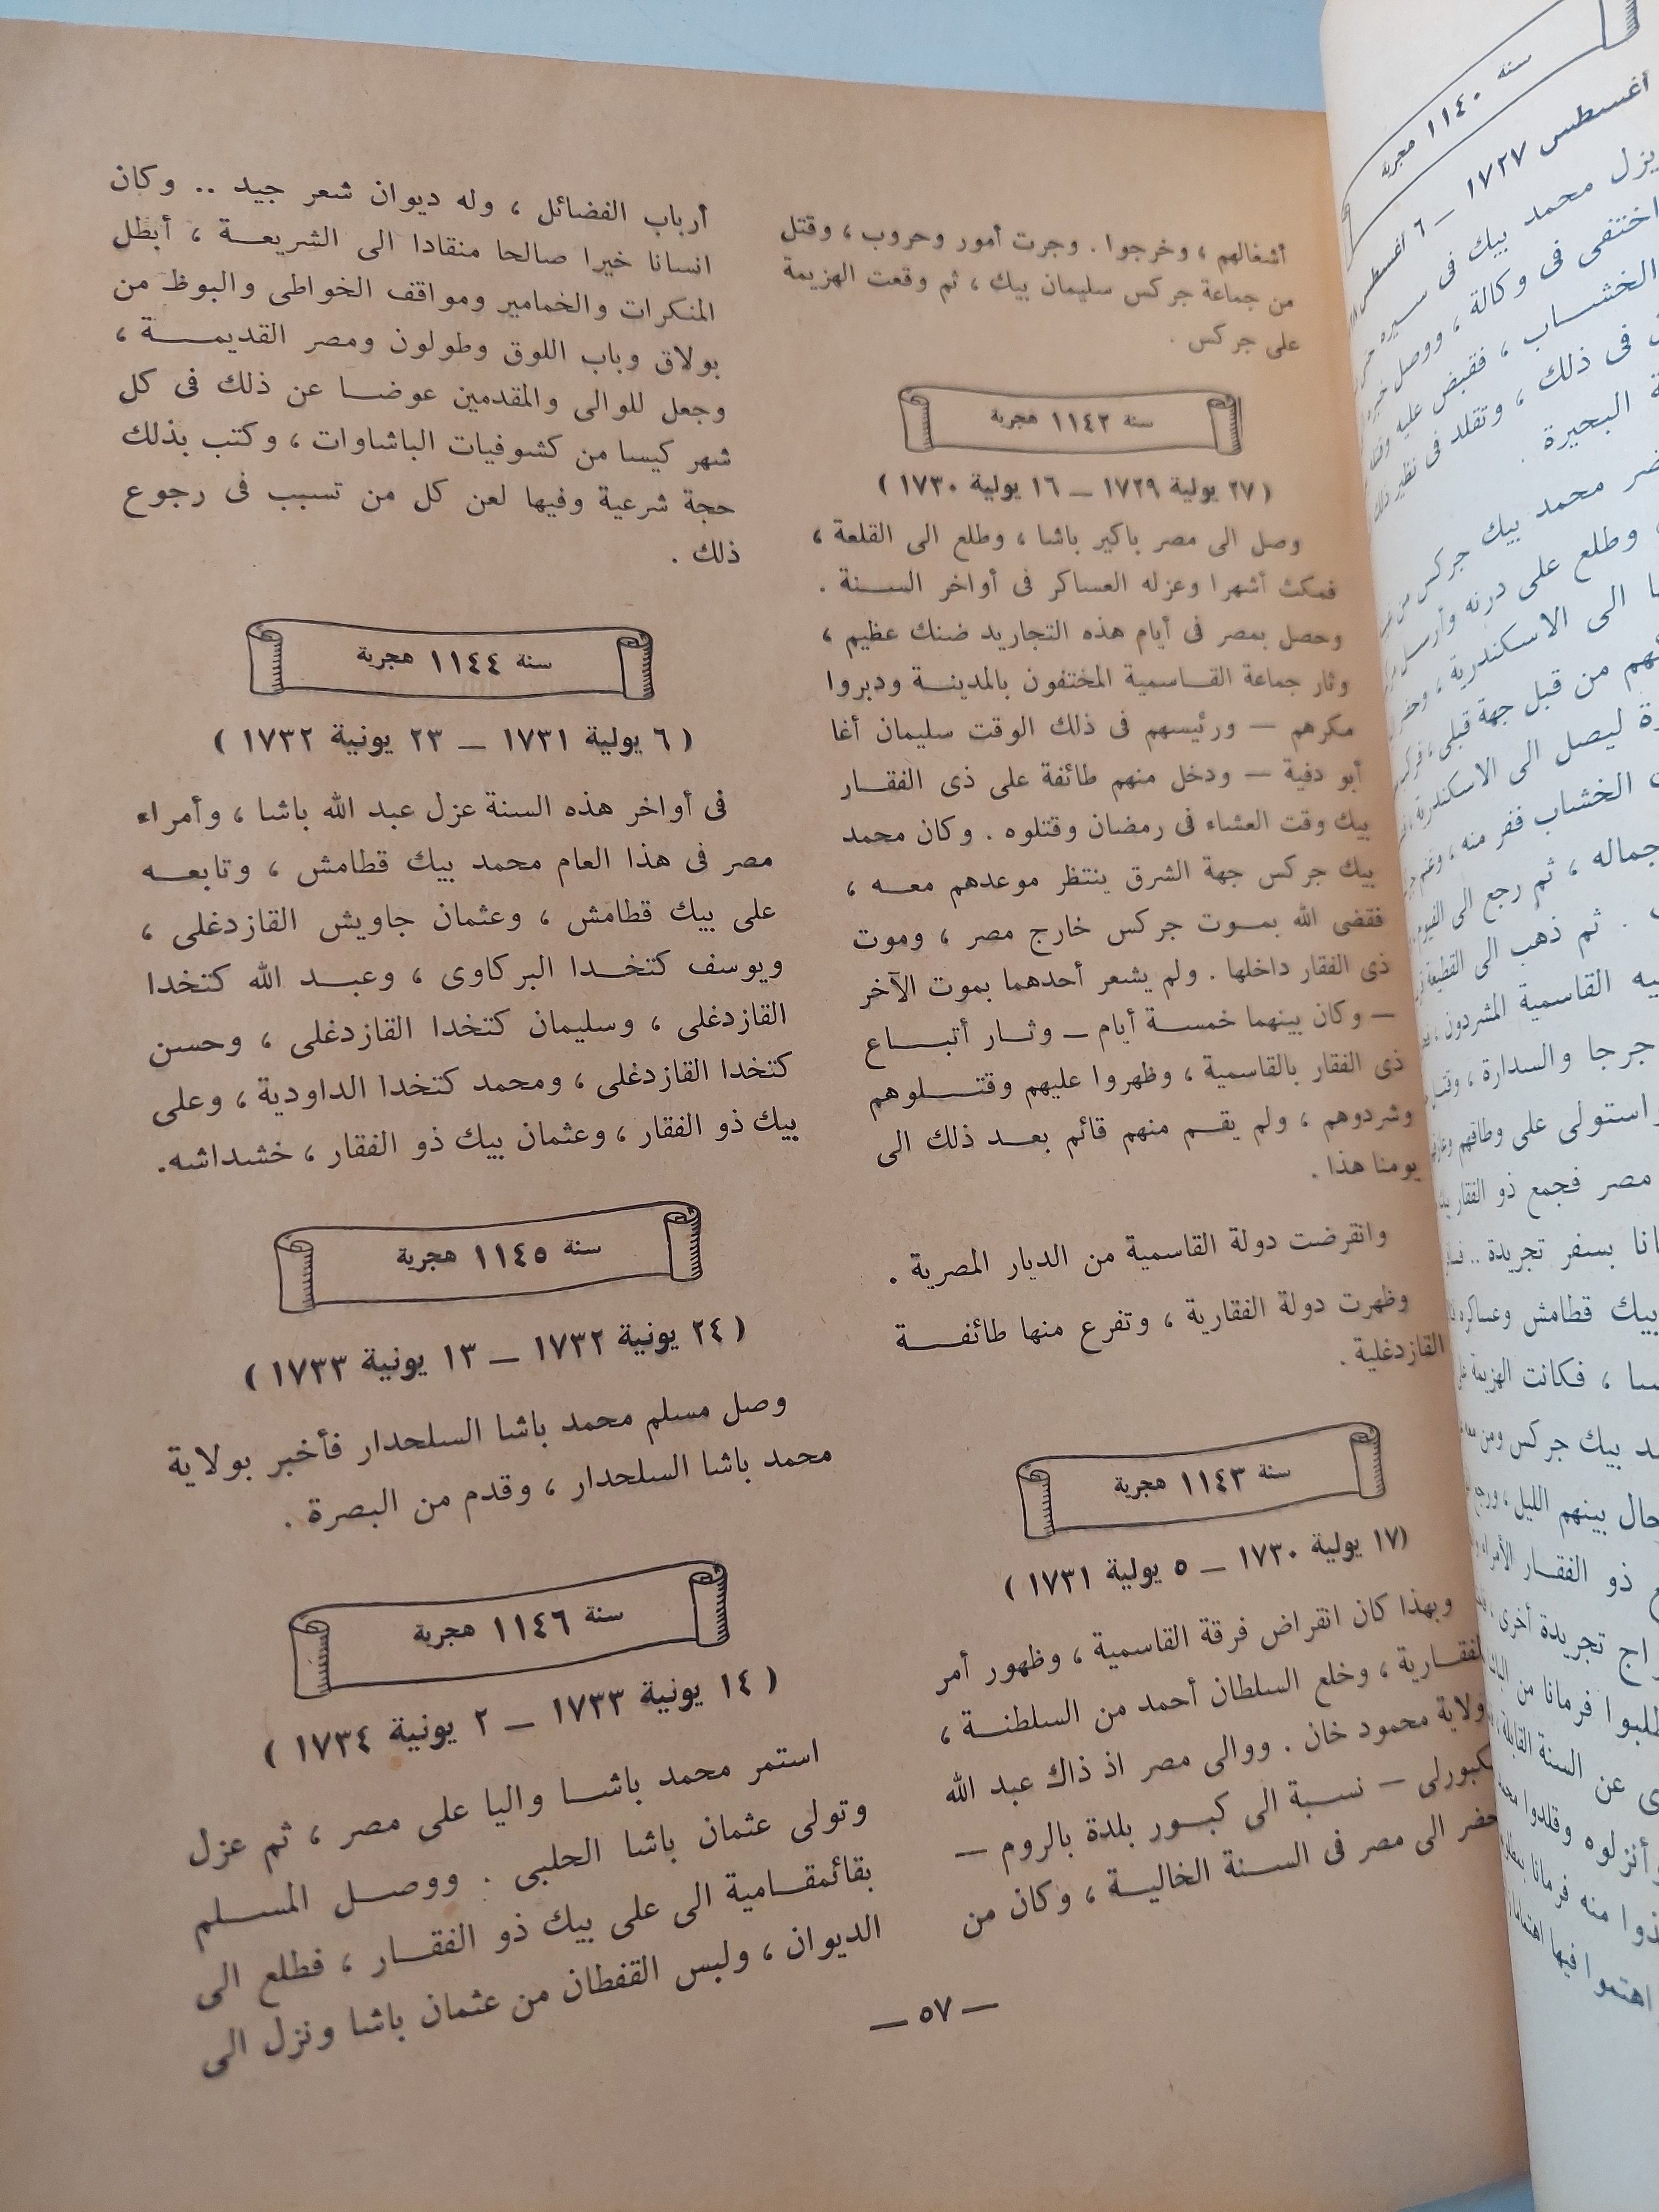 أشغالهم ، وخرجوا . وجرت أمور وحروب ، وقتل
من جماعة جركس سليمان بيك ، ثم وقعت الهزيمة
على جركس .
سنة ١١٤٢ هجرية
( ٢٧ يولية ١٧٢٩ ــ ١٦ يولية ١٧٣٠ )
وصل الى مصر باكير باشا ، وطلع الى القلعة ،
فمكث أشهرا وعزله العساكر فى أواخر السنة .
وحصل بمصر فى أيام هذه التجاريد ضنك عظيم ،
وثار جماعة القاسمية المختفون بالمدينة ودبروا
مكرهم — ورئيسهم فى ذلك الوقت سليمان أغا
أبو دفية — ودخل منهم طائفة على ذى الفقار
بيك وقت العشاء فى رمضان وقتلوه . وكان محمد
بيك جركس جهة الشرق ينتظر موعدهم معه ،
فقضى الله بموت جركس خارج مصر ، وموت
ذى الفقار داخلها . ولم يشعر أحدهما بموت الآخر
— وكان بينهما خمسة أيام — وثار أتباع
ذى الفقار بالقاسمية ، وظهروا عليهم وقتلوهم
وشردوهم ، ولم يقم منهم قائم بعد ذلك الى
يومنا هذا .
وانقرضت دولة القاسمية من الديار المصرية .
وظهرت دولة الفقارية ، وتفرع منها طائفة
القازدغلية .
سنة ١١٤٣ هجرية
(١٧ يولية ١٧٣٠ ــ ٥ يولية ١٧٣١ )
وبهذا كان انقراض فرقة القاسمية ، وظهور أمر
الفقارية ، وخلع السلطان أحمد من السلطنة ،
وولاية محمود خان . ووالى مصر اذ ذاك عبد الله
الكبورلى — نسبة الى كبور بلدة بالروم —
حضر الى مصر فى السنة الخالية ، وكان من
أرباب الفضائل ، وله ديوان شعر جيد .. وكان
انسانا خيرا صالحا منقادا الى الشريعة ، أبطل
المنكرات والخمامير ومواقف الخواطى والبوظ من
بولاق وباب اللوق وطولون ومصر القديمة ،
وجعل للوالى والمقدمين عوضا عن ذلك فى كل
شهر كيسا من كشوفيات الباشاوات ، وكتب بذلك
حجة شرعية وفيها لعن كل من تسبب فى رجوع
ذلك .
سنة ١١٤٤ هجرية
( ٦ يولية ١٧٣١ ــ ٢٣ يونية ١٧٣٢ )
فى أواخر هذه السنة عزل عبد الله باشا ، وأمراء
مصر فى هذا العام محمد بيك قطامش ، وتابعه
على بيك قطامش ، وعثمان جاويش القازدغلى ،
ويوسف كتخدا البركاوى ، وعبد الله كتخدا
القازدغلى ، وسليمان كتخدا القازدغلى ، وحسن
كتخدا القازدغلى ، ومحمد كتخدا الداودية ، وعلى
بيك ذو الفقار ، وعثمان بيك ذو الفقار ، خشداشه.
سنة ١١٤٥ هجرية
( ٢٤ يونية ١٧٣٢ ــ ١٣ يونية ١٧٣٣ )
وصل مسلم محمد باشا السلحدار فأخبر بولاية
محمد باشا السلحدار ، وقدم من البصرة .
سنة ١١٤٦ هجرية
( ١٤ يونية ١٧٣٣ ــ ٢ يونية ١٧٣٤ )
استمر محمد باشا واليا على مصر ، ثم عزل
وتولى عثمان باشا الحلبى . ووصل المسلم
بقائمقامية الى على بيك ذو الفقار ، فطلع الى
الديوان ، ولبس القفطان من عثمان باشا ونزل الى
— ٥٧ —
سنة ١١٤٠ هجرية
أغسطس ١٧٢٧ ــ ٦ أغسطس
يزل محمد بيك فى سيره
اختفى فى وكالة ، ووصل خبره
الخشاب ، فقبض عليه
فى ذلك ، وتقلد فى نظير ذلك
البحيرة .
محمد بيك جركس من
وطلع على درنه وأرسل
الى الاسكندرية ،
من قبل جهة قبلى ،
ليصل الى الاسكندرية
الخشاب ففر منه ،
جماله ، ثم رجع الى الفيوم
. ثم ذهب الى القطيعة
القاسمية المشردون ،
جرجا والسدارة ،
استولى على وطاقهم
مصر فجمع ذو الفقار
بسفر تجريدة ..
بيك قطامش وعساكره
، فكانت الهزيمة
بيك جركس ومن معه
بينهم الليل ، ورجع
ذو الفقار الأمراء
تجريدة أخرى
فرمانا من
عن السنة القابلة
وأنزلوه وقلدوا
منه فرمانا
اهتموا فيها